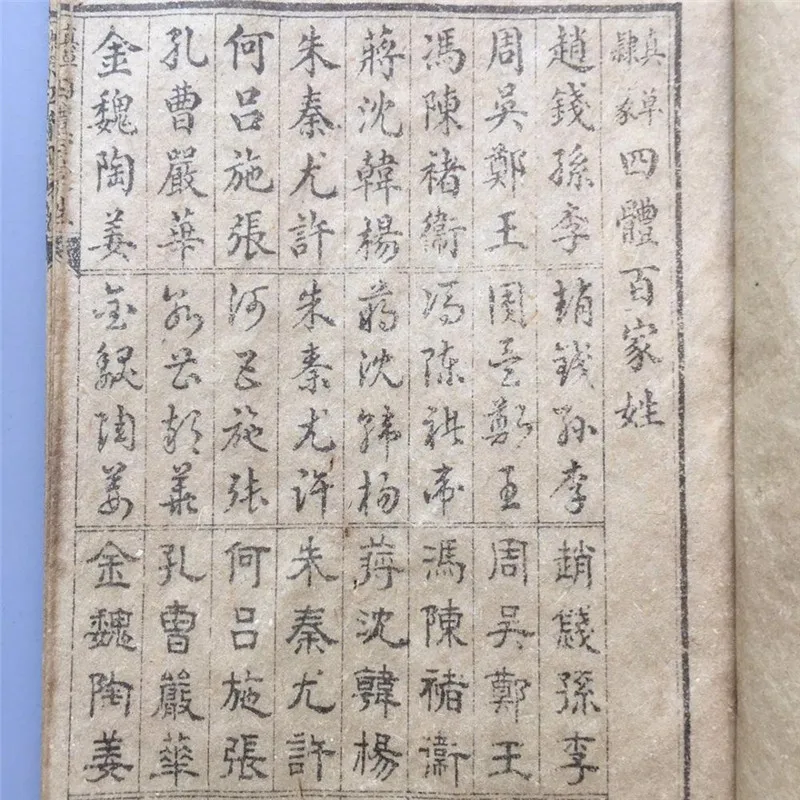 真草隸篆四體百家姓
趙錢孫李
周吳鄭王
馮陳褚衞
蔣沈韓楊
朱秦尤許
何呂施張
孔曹嚴華
金魏陶姜
趙錢孫李
周吳鄭王
馮陳褚衞
蔣沈韓楊
朱秦尤許
何呂施張
孔曹嚴華
金魏陶姜
趙錢孫李
周吳鄭王
馮陳褚衞
蔣沈韓楊
朱秦尤許
何呂施張
孔曹嚴華
金魏陶姜